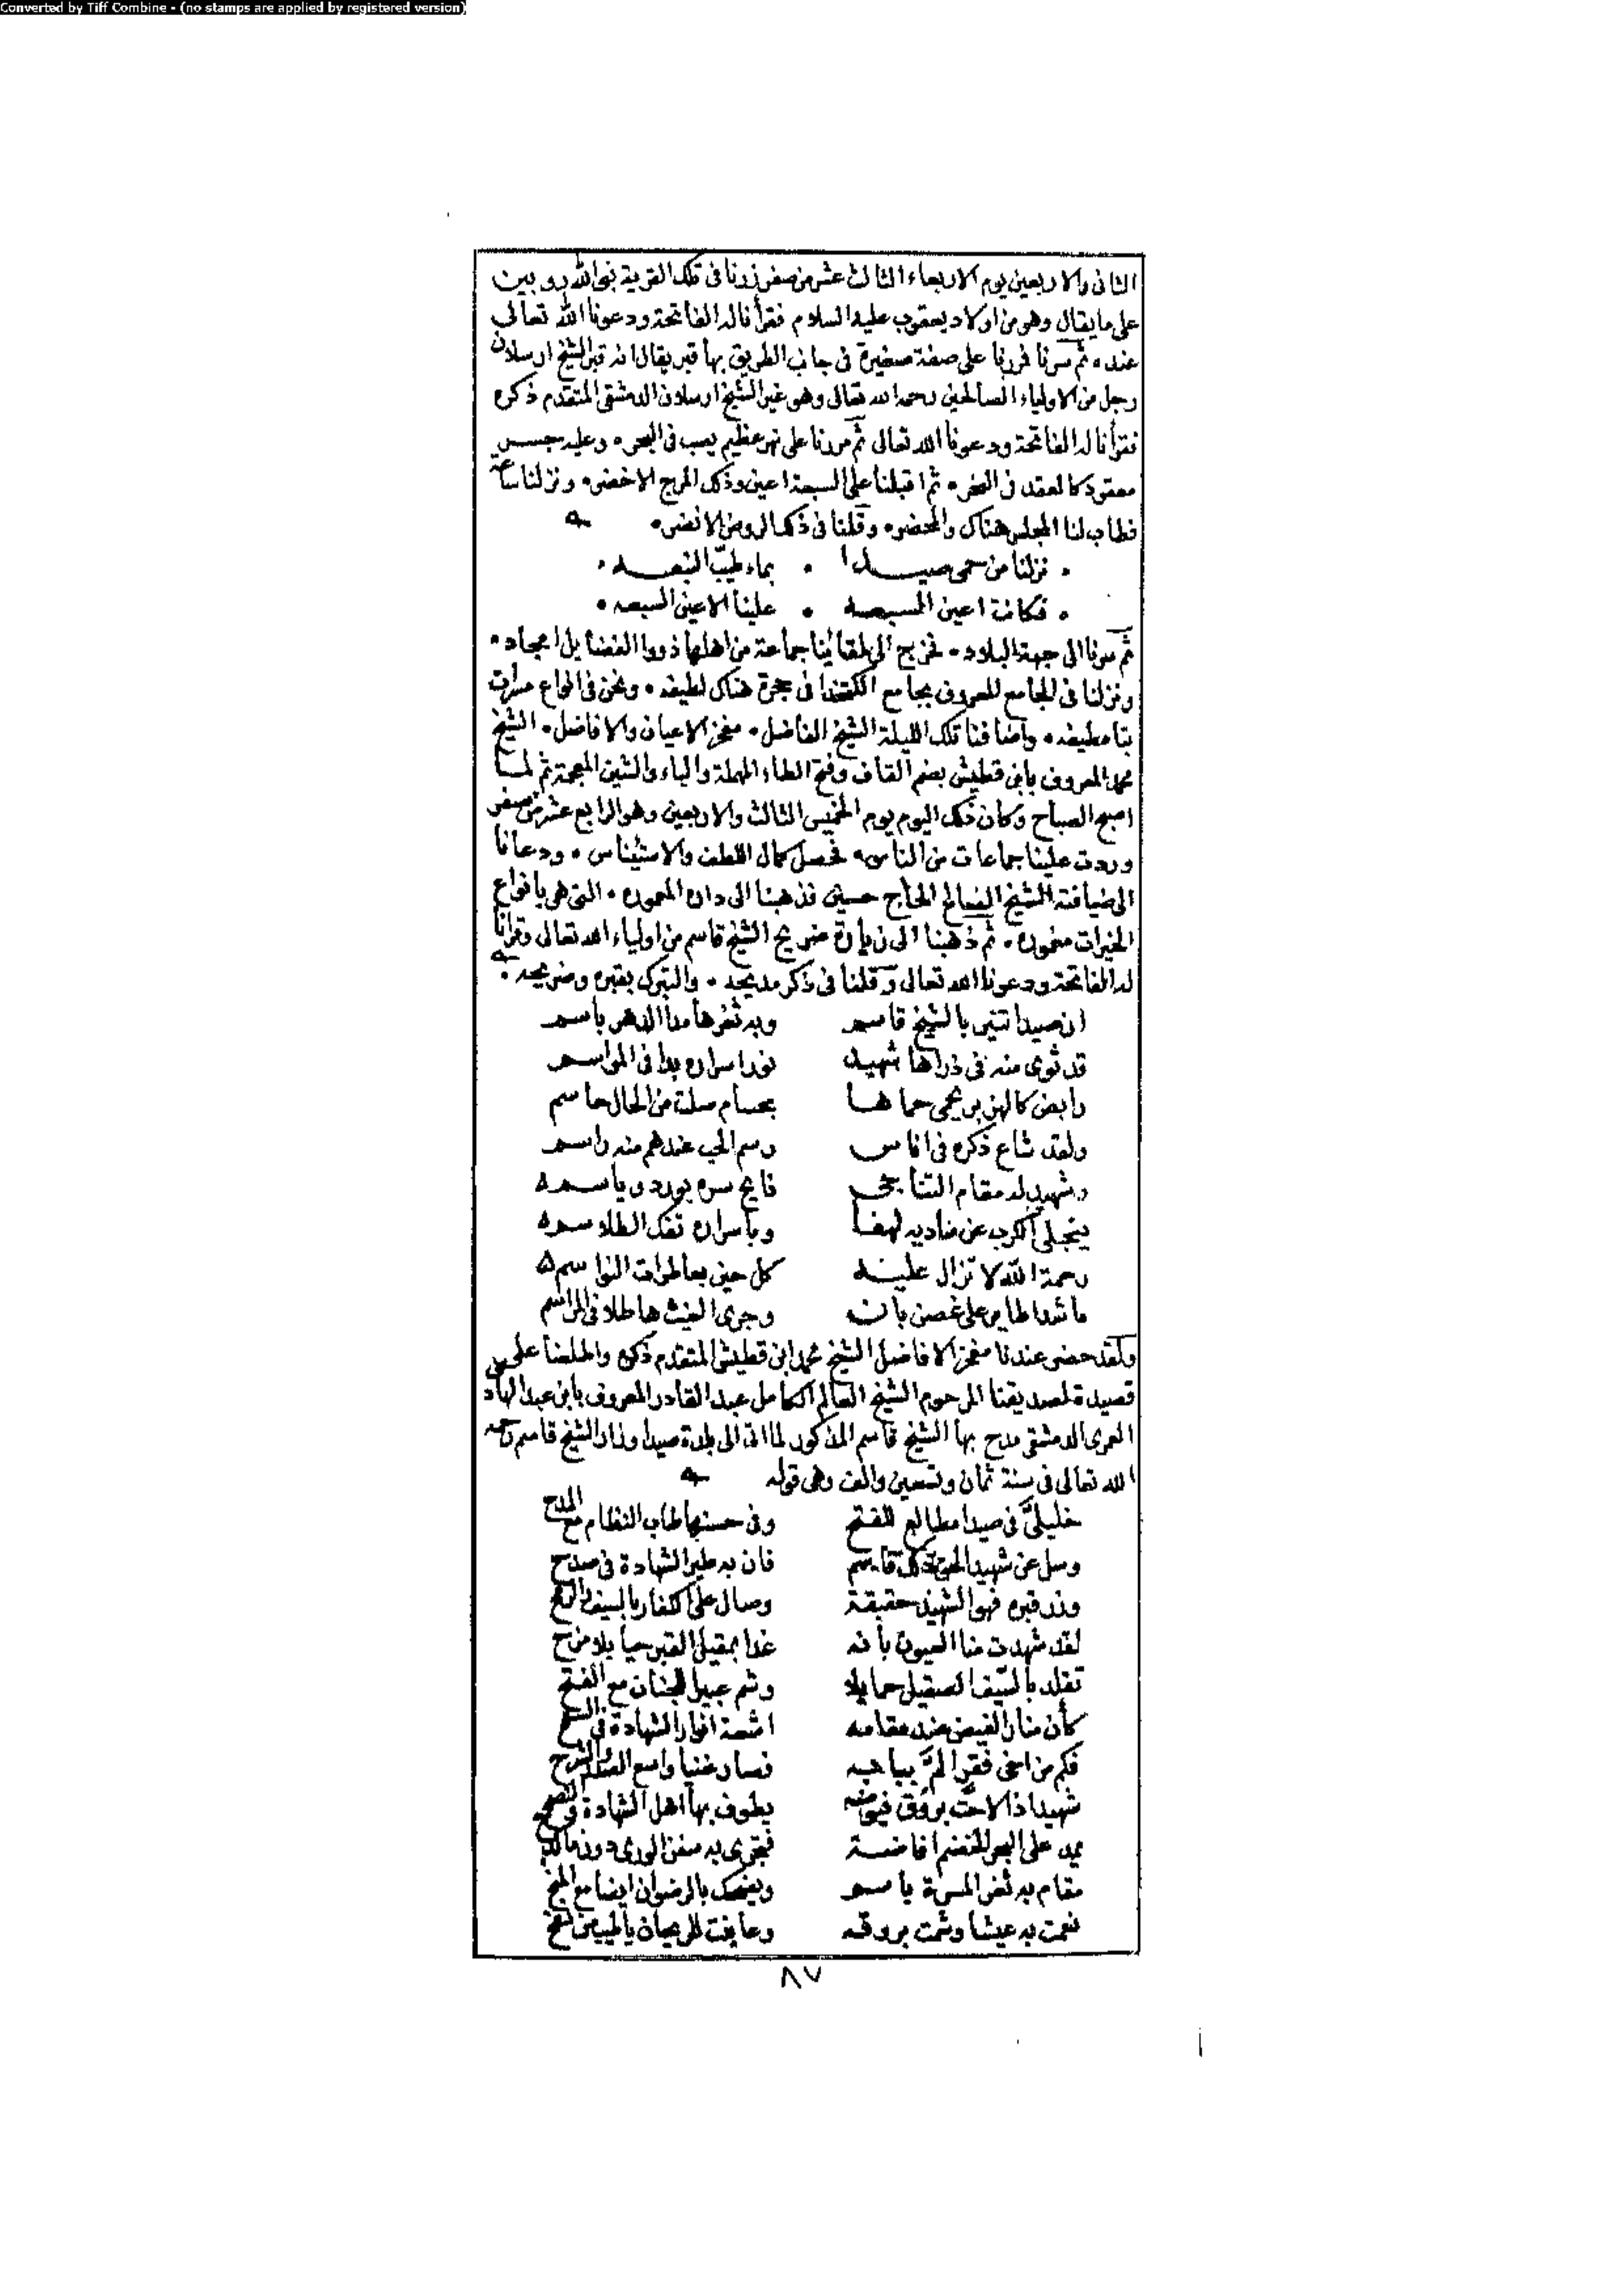 Converted by Tiff Combine - (no stamps are applied by registered version)
الثانى والاربعين يوم الاربعاء الثالث عشر من صفر زرنا فى تلك القرية نبى الله روبين
على ما يقال وهو من اولاد يعقوب عليه السلام فقرأنا له الفاتحة ودعونا الله تعالى
عنده ثم سرنا فمررنا على صفة صغيرة فى جانب الطريق بها قبر يقال انه قبر الشيخ ارسلان
رجل من الاولياء الصالحين رحمه الله تعالى وهو غير الشيخ ارسلان الدمشقى المتقدم ذكره
فقرأنا له الفاتحة ودعونا الله تعالى ثم مررنا على نهر عظيم يصب فى البحر وعليه جسر
معقود كالعقد فى النحر ثم اقبلنا على السبعة اعين وذلك المرج الاخضر ونزلنا ساعة
فطاب لنا المجلس هناك والمحضر وقلنا فى ذلك الروض الانضر
نزلنا من حمى صيدا بماء طيب النبعه
فكانت اعين السبعه علينا الاعين السبعه
ثم سرنا الى جهة البلاد فخرج الى لقائنا جماعة من اهلها ذووا الفضايل امجاد
ونزلنا فى الجامع المعروف بجامع الكتخدا فى حجرة هناك لطيفه ونحن فى انواع مسرات
بنا مطيفه واضافنا تلك الليلة الشيخ الفاضل مفخر الاعيان والافاضل الشيخ
محمد المعروف بابن قطيش بضم القاف وفتح الطاء المهملة والياء والشين المعجمة ثم لما
اصبح الصباح وكان ذلك اليوم يوم الخميس الثالث والاربعين وهو الرابع عشر من صفر
وردت علينا جماعات من الناس فحصل كمال اللطف والاستئناس ودعانا
الى ضيافته الشيخ الصالح الحاج حسين فذهبنا الى داره المعموره التى هى بانواع
الخيرات مغموره ثم ذهبنا الى زيارة ضريح الشيخ قاسم من اولياء الله تعالى وقرأنا
له الفاتحة ودعونا الله تعالى وقلنا فى ذكر مديحه والتبرك بقبره وضريحه
ان صيدا تتيه بالشيخ قاسم وبه ثغرها مدا الدهر باسم
قد ثوى منه فى ذراها شهيد نور اسراره بدا فى المواسم
رابض كالهزبر يحمى حماها بحسام سلت من الحال حاسم
ولقد شاع ذكره فى اناس رسم الحب عندهم منه راسم
وشهيد له مقام فايح سره بورد وياسم
ينجلى الكرب عن مناديه لهفا وباسراره تفك الطلاسم
رحمة الله لا تزال عليه كل حين بعاطرات النواسم
ما شدا طاير على غصن بان وجرى الغيث هاطلا فى المراسم
ولقد حضر عندنا مفخر الافاضل الشيخ محمد ابن قطيش المتقدم ذكره واطلعنا على
قصيدة لصديقنا المرحوم الشيخ العالم الكامل عبد القادر المعروف بابن عبد الهاد
العمرى الدمشقى مدح بها الشيخ قاسم المذكور لما اتى الى بلدة صيدا وزار الشيخ قاسم رحمه
الله تعالى فى سنة ثمان وتسعين والف وهى قوله
خليلى فى صيدا مطالع للفتح وفى حسنها طاب النظام مع المدح
وسل عن شهيد قاسم فان به طير الشهادة فى صدح
وزد قبره فهو الشهيد حقيقة وصال على الكفار بالسيف
لقد شهدت منا العيون بانه غدا بمقيل القبر حيا بلا مزح
تقلد بالسيف الصقيل حمايلا وشم عبير الجنان مع الفتح
كأن منار الفيض عند مقامه اشعة انوار الشهادة فى
فكم من اخى فقر الم ببابه فصار غنيا واسع
شهيد اذا لاحت بروق فيوضه يطوف بها اهل الشهادة فى
يمد على البحر الخضم افاضة فتجرى به سفن الورى دون
مقام به ثغر المسرة باسم ويضحك بالرضوان ايضا مع المنح
نعمت به عيشا وشمت بروقه وعاينت
٨٧